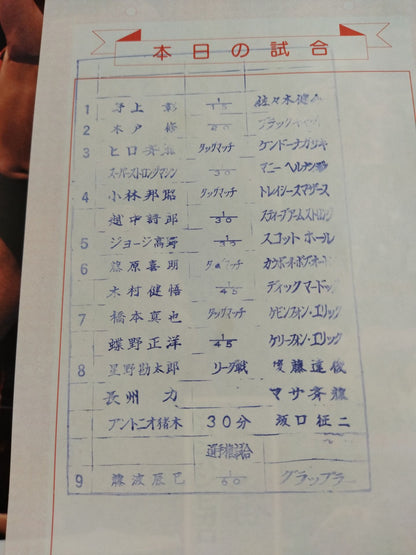 本日の試合
1 野上 彰 1/15 佐々木健介
2 木戸 修 1/20 ブラック
3 ヒロ斉藤 タッグマッチ ケンドーナガサキ
スーパーストロングマシン 1/30 マニー ヘルナンデス
4 小林邦昭 タッグマッチ トレイシースマザース
越中詩郎 1/30 スティーブアームストロング
5 ジョージ高野 スコット ホール
6 藤原喜明 タッグマッチ カウボーイボブオートン
木村健悟 1/45 ディック マードック
7 橋本真也 タッグマッチ ケビンフォン・エリック
蝶野正洋 1/45 ケリーフォン・エリック
8 星野勘太郎 リーグ戦 後藤達俊
長州 力 マサ斉藤
アントニオ猪木 30分 坂口征二
選手権試合
9 藤波辰巳 1/60 グラップラ